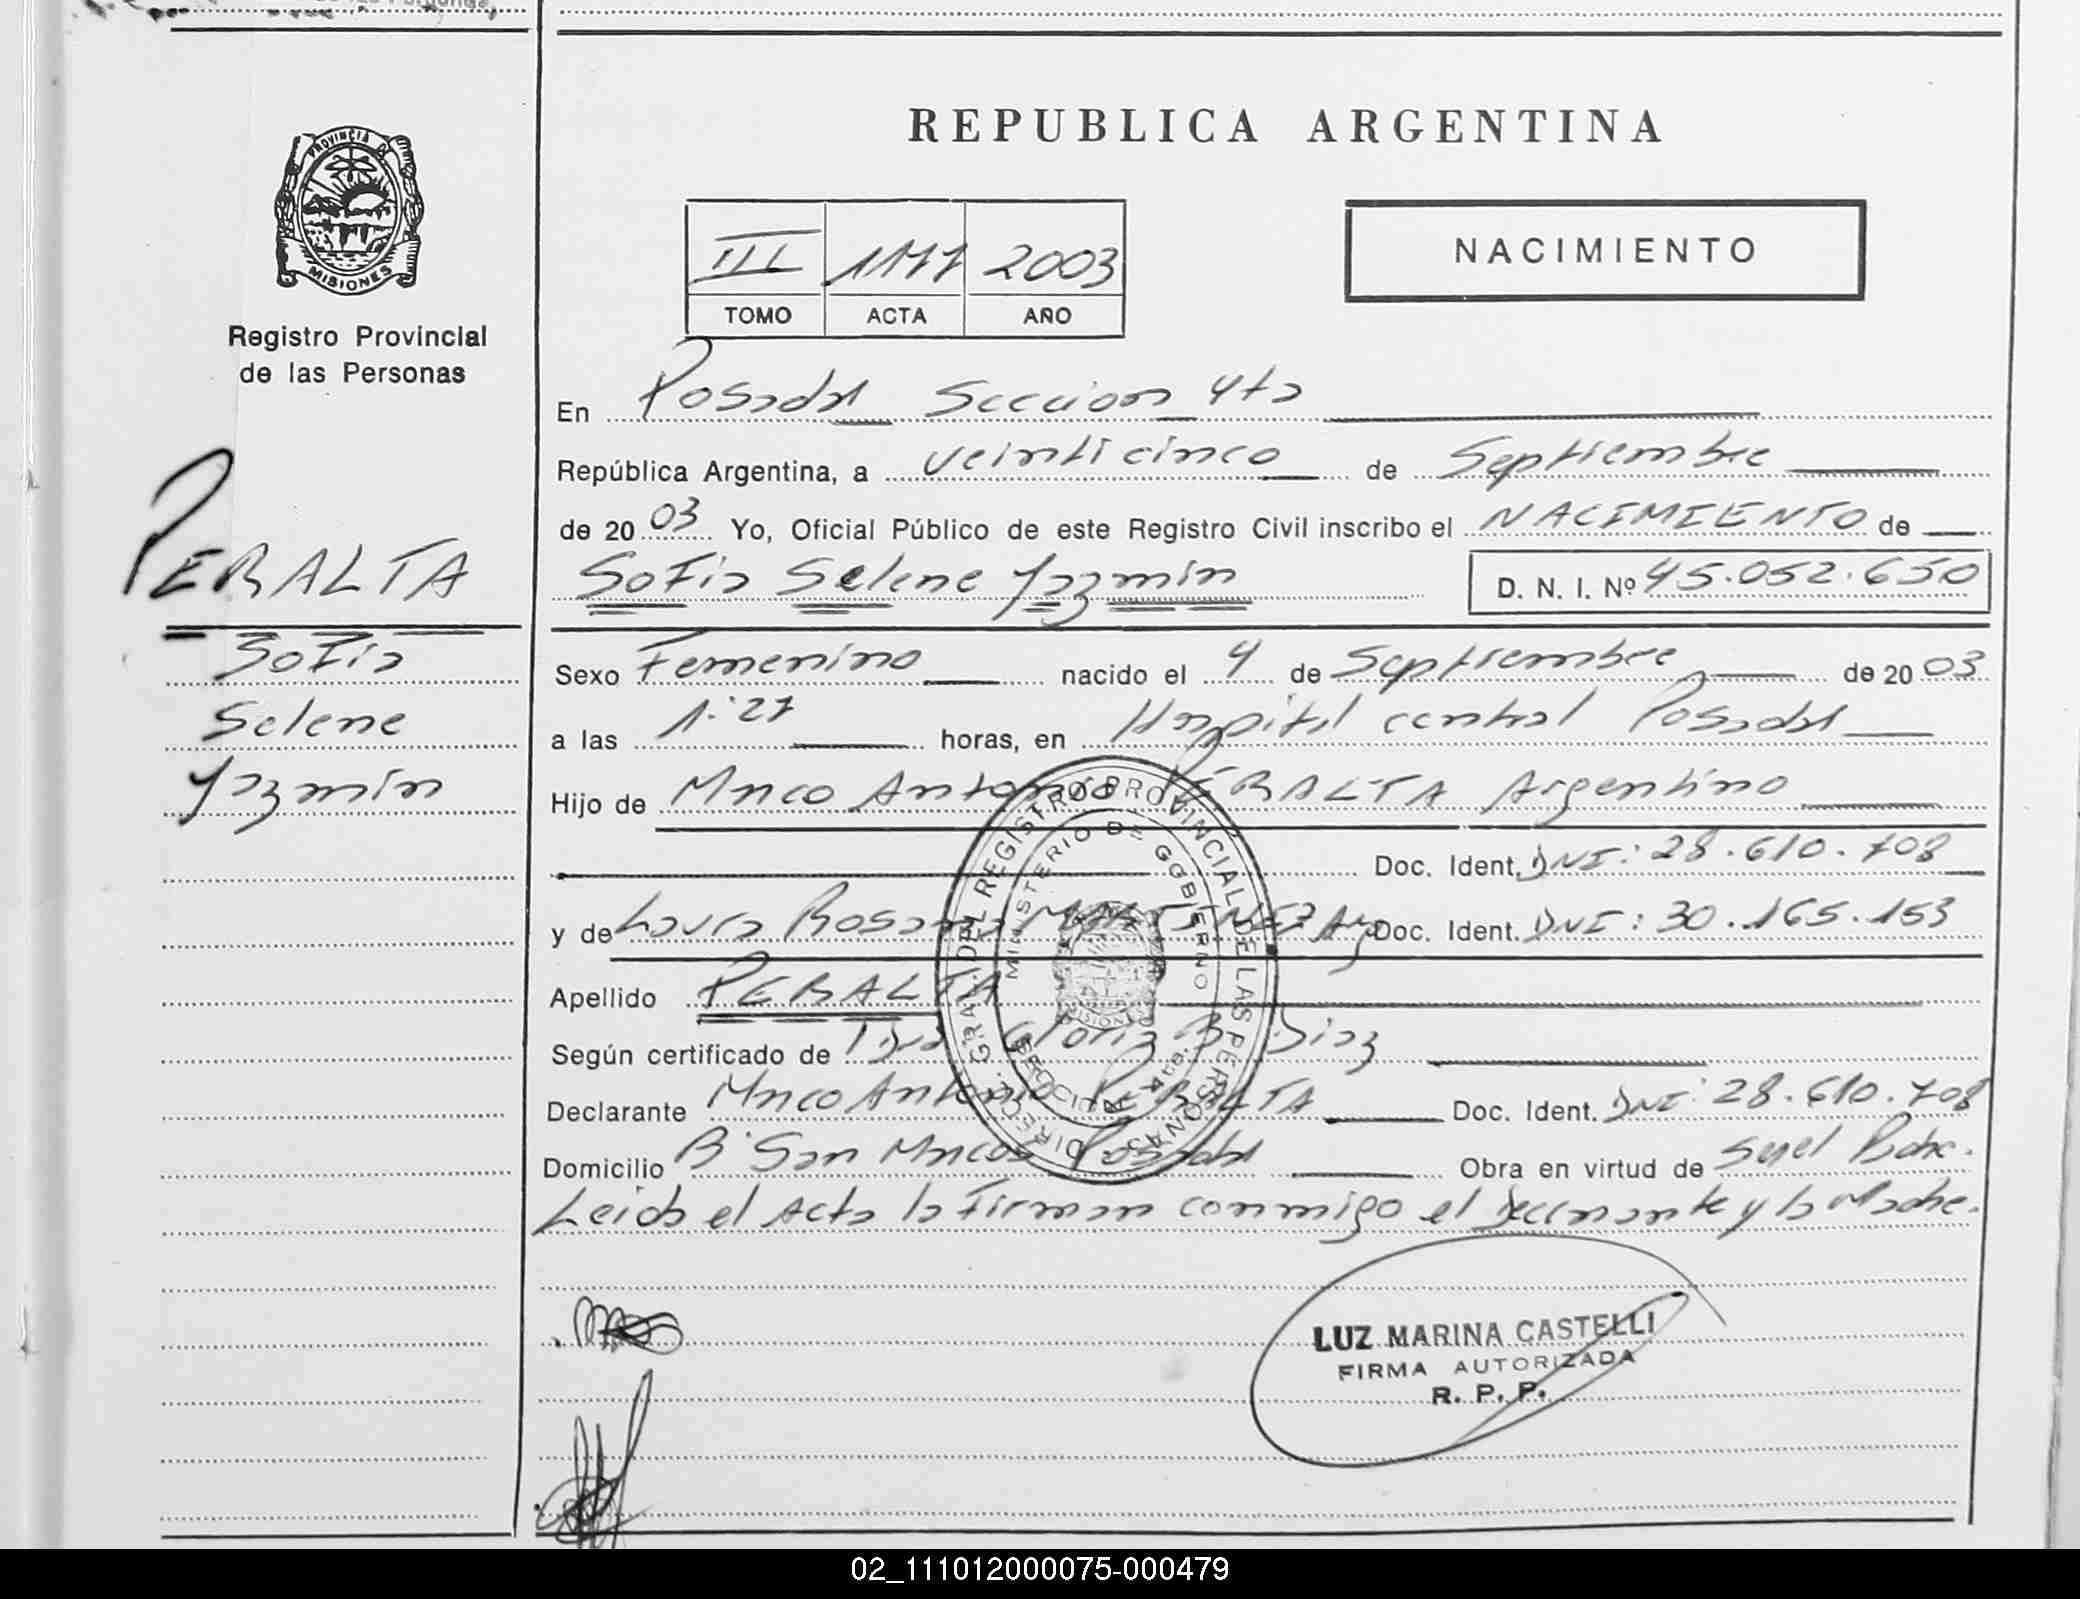 PROVINCIA DE
MISIONES
Registro Provincial
de las Personas
PERALTA
Sofia
Selene
Yazmín
REPUBLICA ARGENTINA
III 1177 2003
TOMO ACTA AÑO
NACIMIENTO
En Posadas Seccion 4ta
República Argentina, a veinticinco de Septiembre
de 2003 Yo, Oficial Público de este Registro Civil inscribo el NACIMIENTO de
Sofia Selene Yazmín D. N. I. Nº 45.052.650
Sexo Femenino nacido el 4 de Septiembre de 2003
a las 1:27 horas, en Hospital central Posadas
Hijo de Marco Antonio PERALTA Argentino
Doc. Ident. DNI: 28.610.708
y de Laura Rosana MARTINEZ Arg Doc. Ident. DNI: 30.165.153
Apellido PERALTA
Según certificado de Dra Gloria B. Diaz
Declarante Marco Antonio PERALTA Doc. Ident. DNI 28.610.708
Domicilio B° San Marcos Posadas Obra en virtud de ser el Padre.
Leida el Acta la Firman conmigo el Declarante y la Madre.
DIRECC. GRAL. DEL REGISTRO PROVINCIAL DE LAS PERSONAS
MINISTERIO DE GOBIERNO
MISIONES
LUZ MARINA CASTELLI
FIRMA AUTORIZADA
R. P. P.
02_111012000075-000479